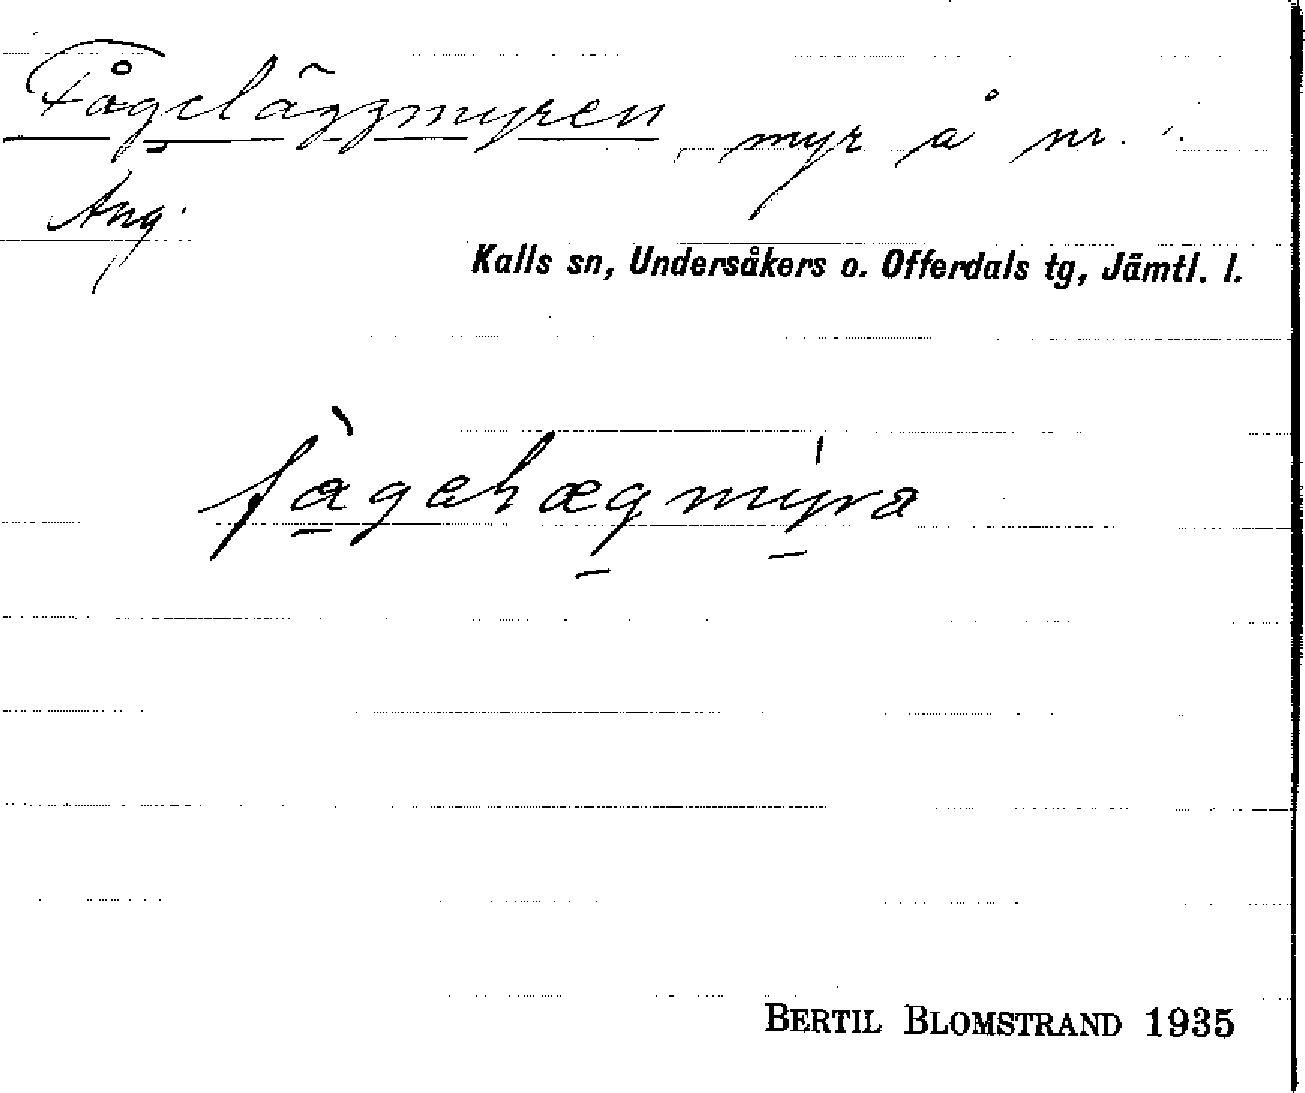 Fågeläggmyren, myr å nr.
Äng.
Kalls sn, Undersåkers o. Offerdals tg, Jämtl. l.
BERTIL BLOMSTRAND 1935